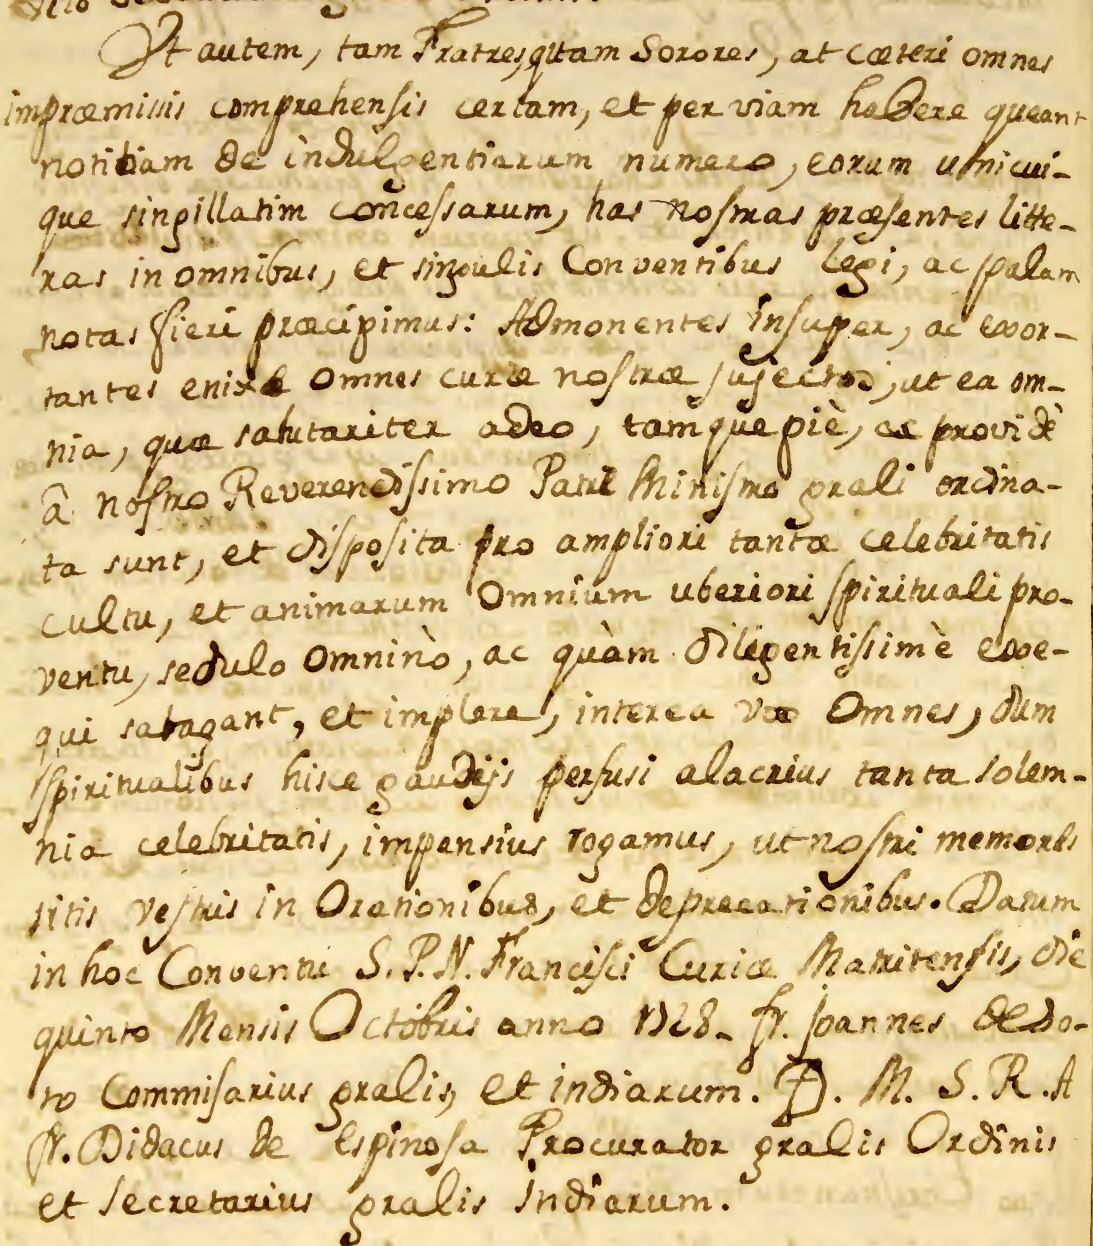 Ut autem, tam Fratres, quam Sorores, at cæteri omnes
in præmissis comprehensis certam, et per viam habere queant
notitiam de indulgentiarum numero, eorum unicui-
que singillatim concessarum, has nostras præsentes litte-
ras in omnibus, et singulis Conventibus legi, ac palam
notas fieri præcipimus: Admonentes insuper, ac exor-
tantes enixè omnes curæ nostræ sujectos, ut ea om-
nia, quæ salutariter adeo, tamque piè, ac providè
â nostro Reverendissimo Patre Ministro grali ordina-
ta sunt, et disposita pro ampliori tantæ celebritatis
cultu, et animarum Omnium uberiori spirituali pro-
ventu, sedulo Omninò, ac quàm diligentissimè exe-
qui satagant, et implere, interea vos Omnes, dum
spiritualibus hisce gaudijs perfusi alacrius tanta solem-
nia celebritatis, impensius rogamus, ut nostri memores
sitis vestris in Orationibus, et deprecationibus. Datum
in hoc Conventu S. P. N. Francisci Curiæ Matritensis, die
quinto Mensis Octobris anno 1728. fr. Joannes de So-
to Commisarius gralis, et indiarum. D. M. S. R. A
fr. Didacus de Espinosa Procurator gralis Ordinis
et Secretarius gralis Indiarum.